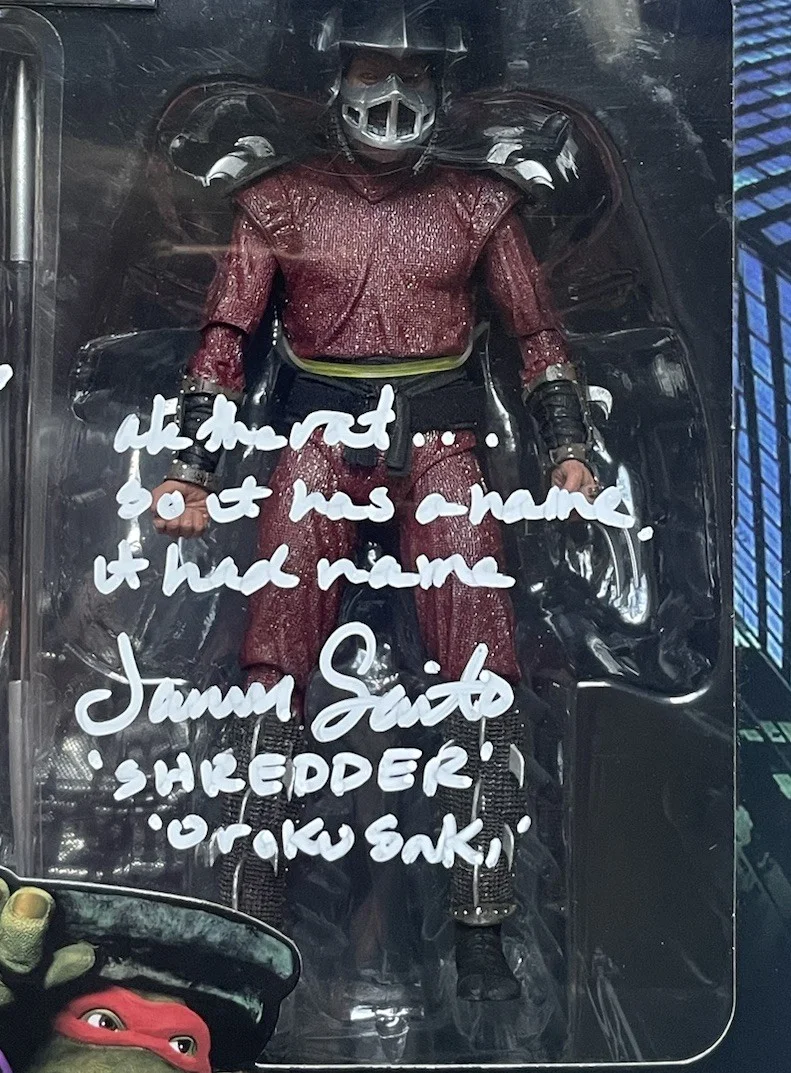 ate the rat ...
so it has a name.
it had name
James Saito
'SHREDDER'
'Oroku Saki'